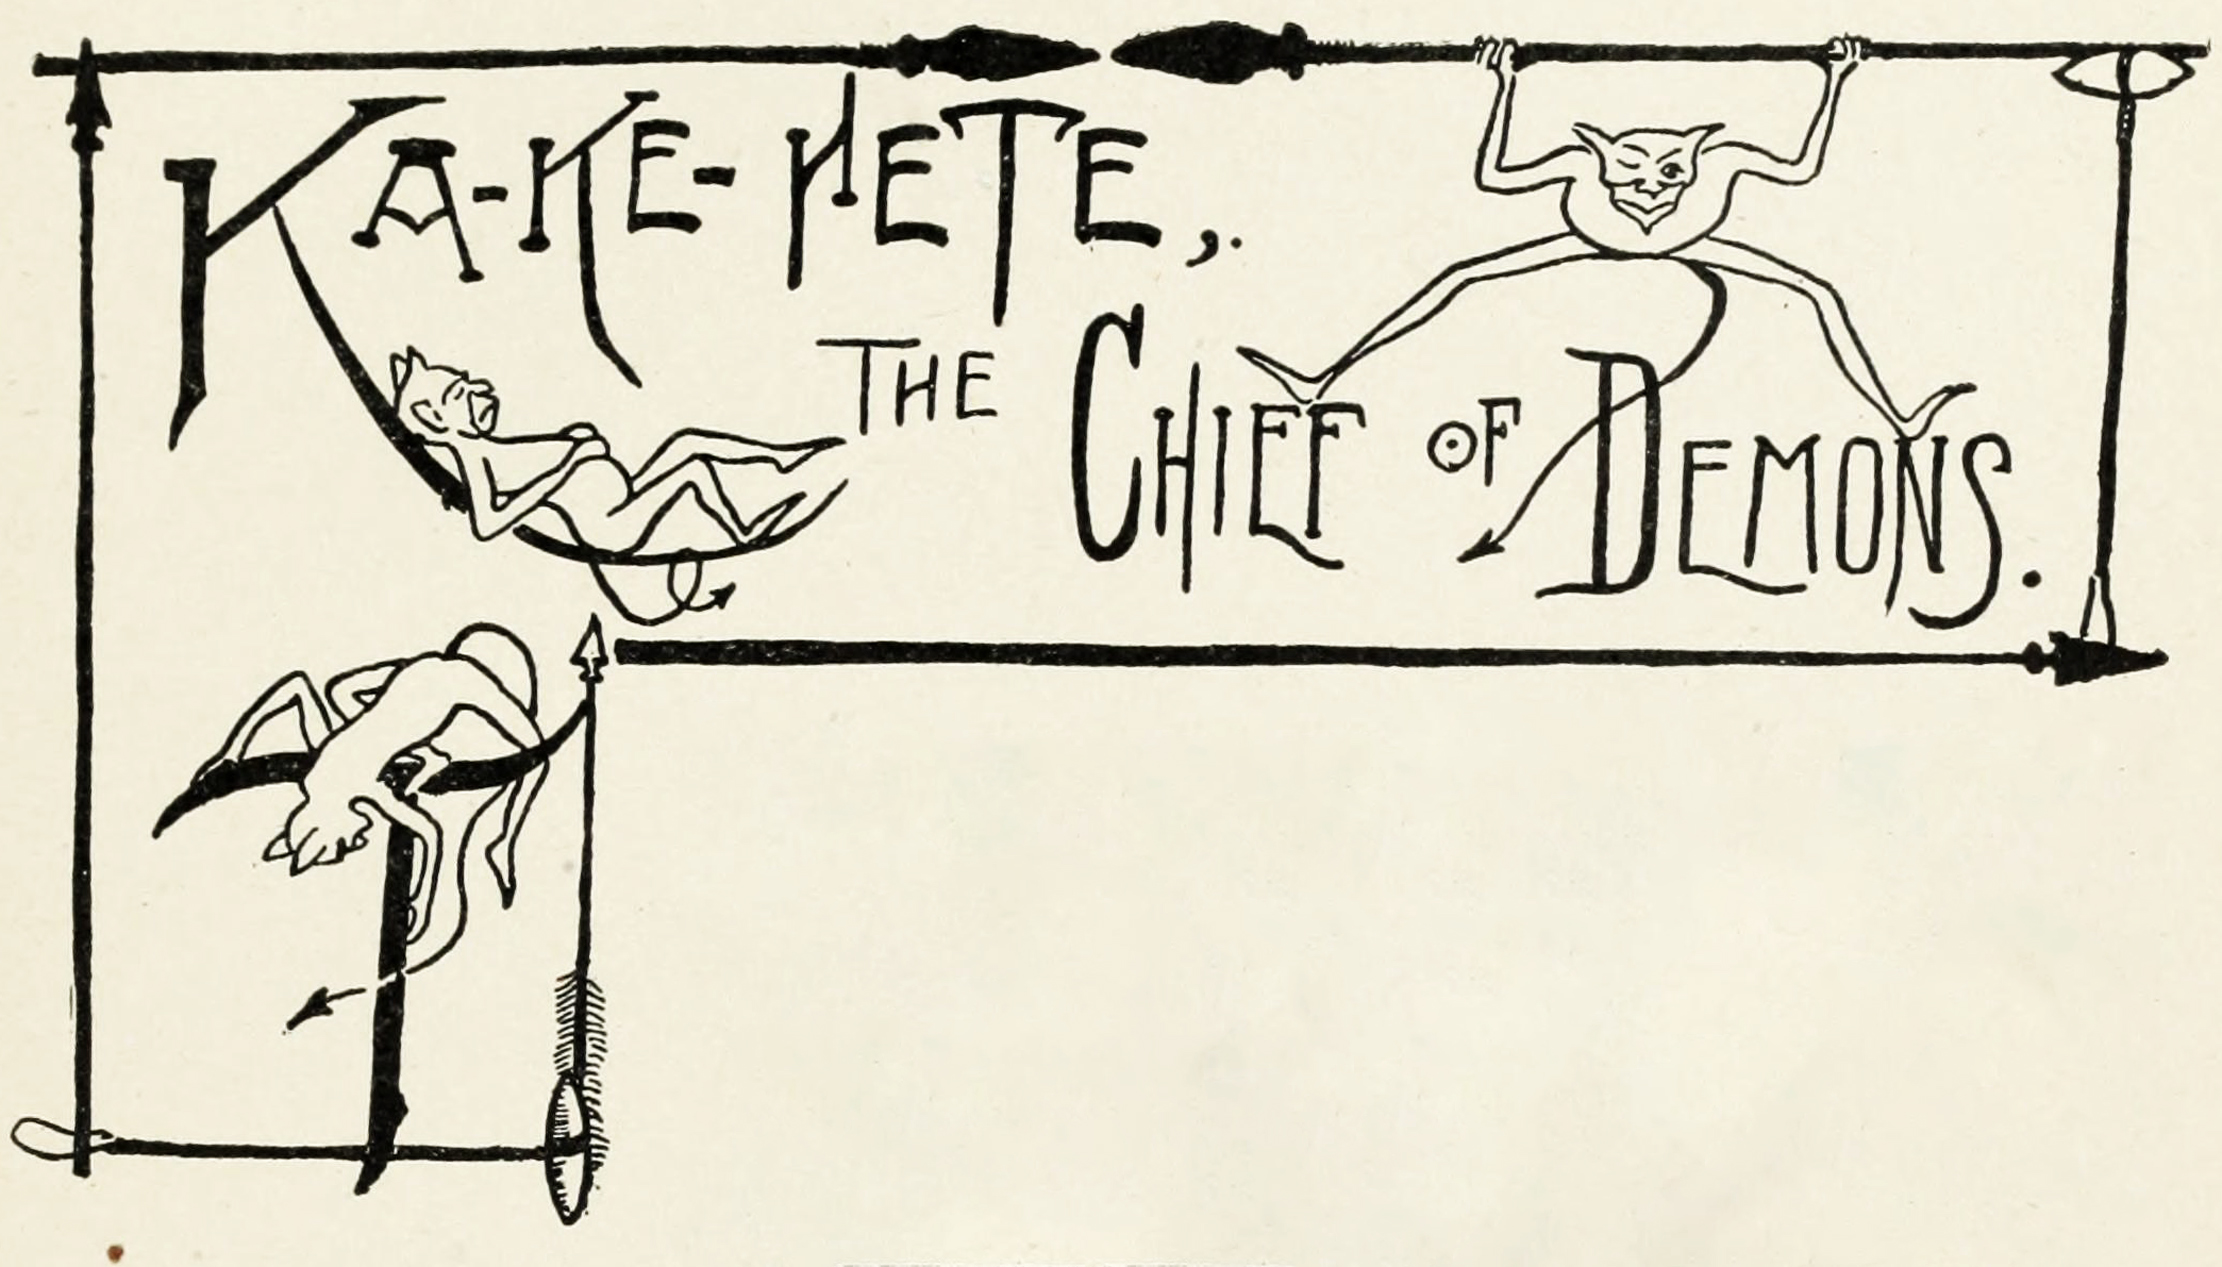 KA-KE-NETE,.
THE CHIEF OF DEMONS.
T